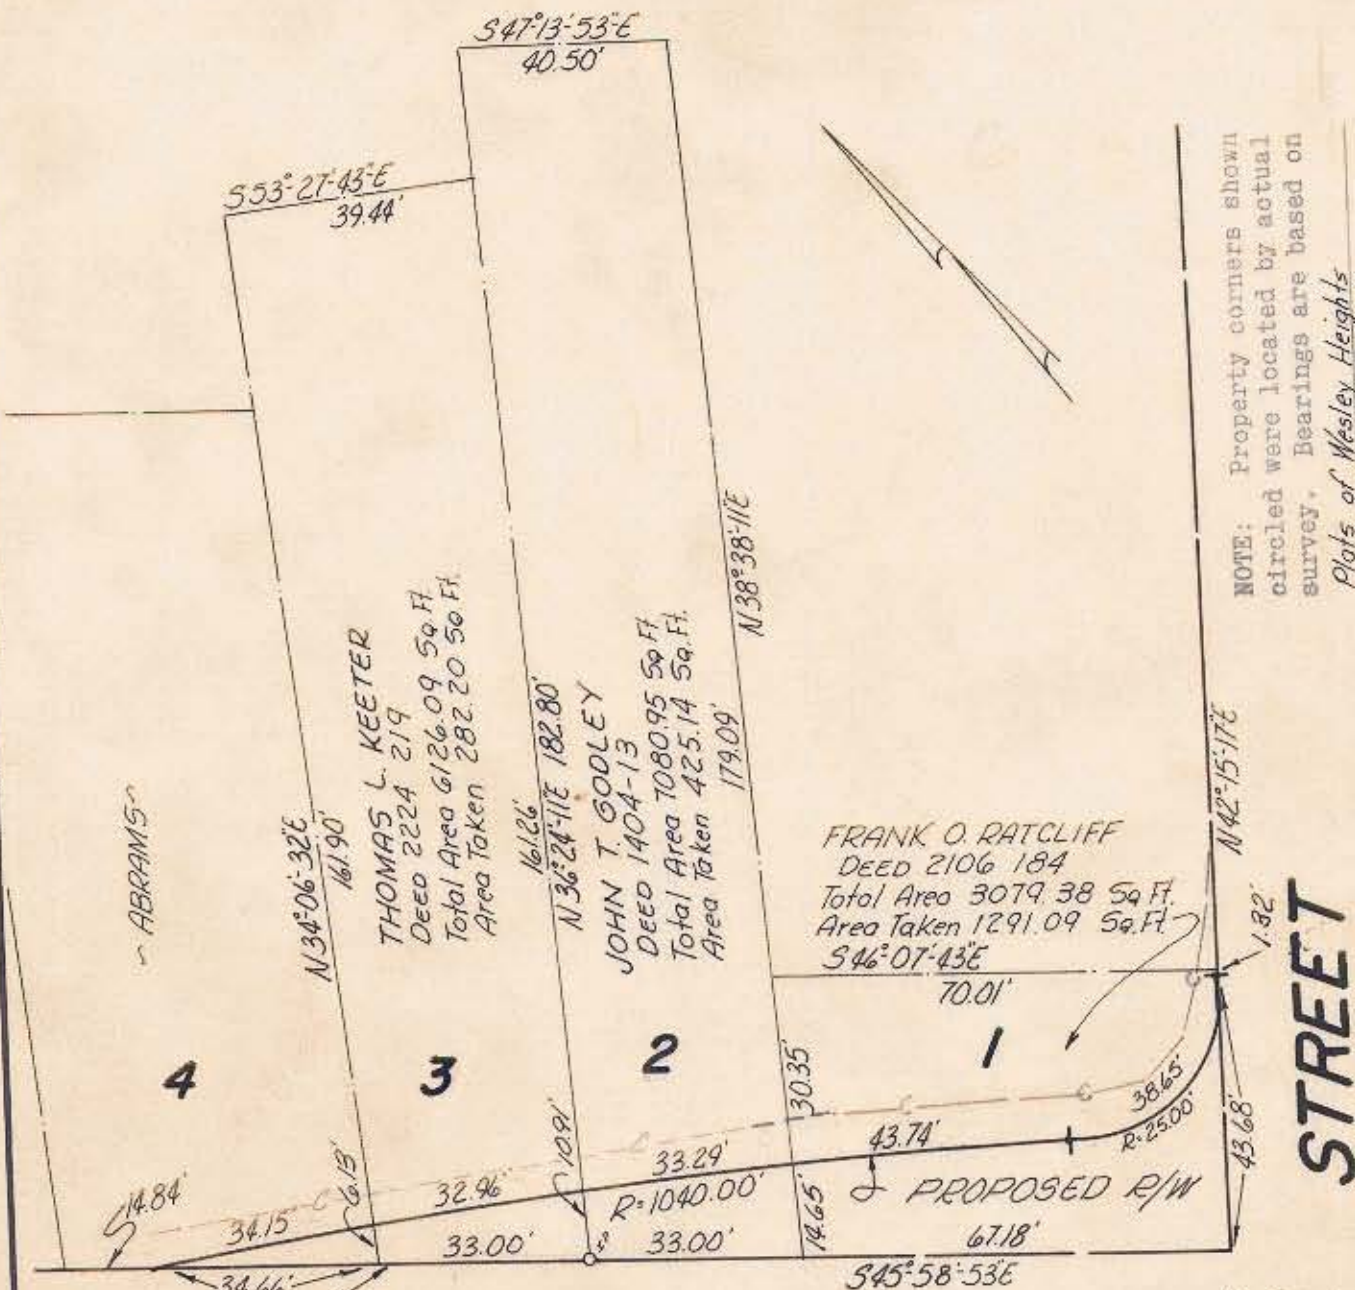 S47°-13'-53"E
40.50'
S53°-27'-43"E
39.44'
NOTE: Property corners shown
circled were located by actual
survey. Bearings are based on
Plats of Wesley Heights
~ABRAMS~
N34°-06'-32"E
161.90'
THOMAS L. KEETER
DEED 2224 219
Total Area 6126.09 Sq.Ft.
Area Taken 282.20 Sq.Ft.
161.26'
N36°-24'-11"E 182.80'
JOHN T. GODLEY
DEED 1404-13
Total Area 7080.95 Sq.Ft.
Area Taken 425.14 Sq.Ft.
179.09'
N38°-38'-11"E
FRANK O. RATCLIFF
DEED 2106 184
Total Area 3079.38 Sq.Ft.
Area Taken 1291.09 Sq.Ft.
S46°-07'-43"E
70.01'
N42°-15'-17"E
1.82'
STREET
4
3
2
1
30.35'
38.65'
R=25.00'
43.68'
43.74'
33.29'
R=1040.00'
10.91'
32.96'
6.13'
34.15'
14.84'
PROPOSED R/W
14.65'
67.18'
33.00'
33.00'
34.66'
S45°-58'-53"E